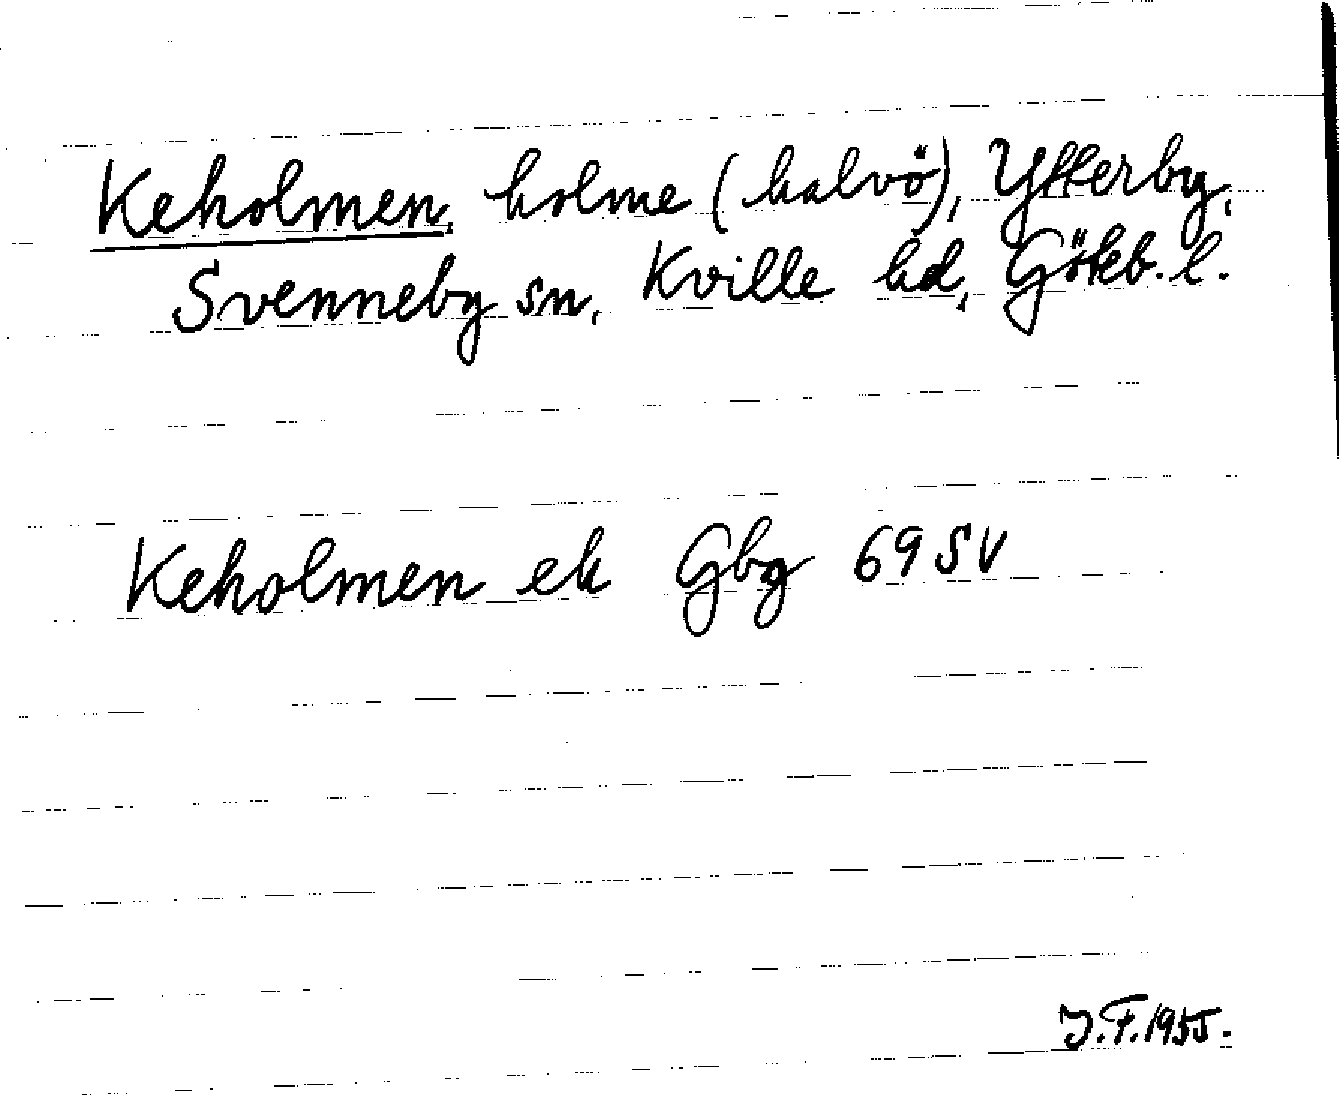 Keholmen, holme (halvö), Ytterby,
Svenneby sn, Kville hd, Göteb. l.
Keholmen ek Gbg 69 SV
J.F. 1955.